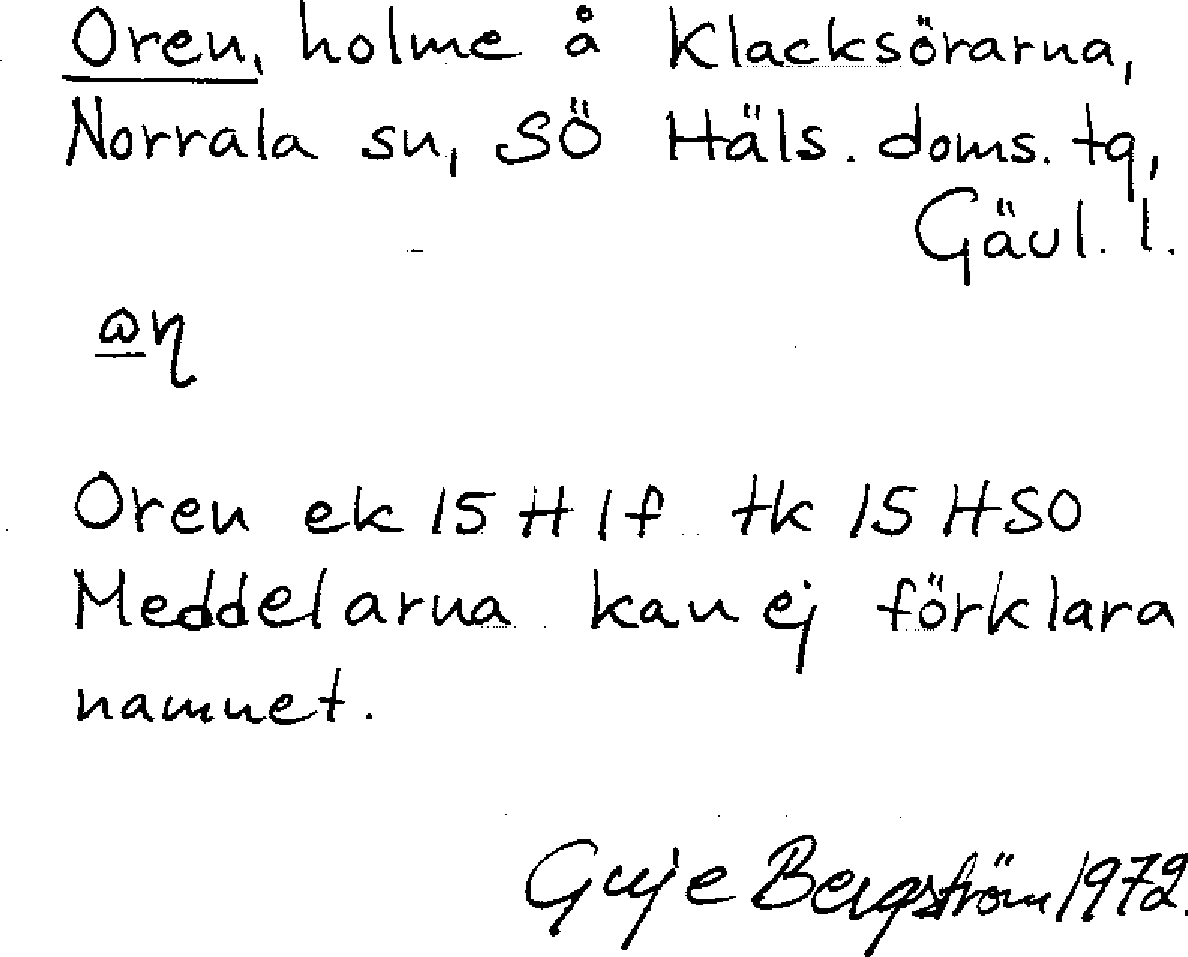 Oren, holme å Klacksörarna,
Norrala sn, SÖ Häls. doms. tg,
Gävl. l.
Oren ek 15 H 1f tk 15 HSO
Meddelarna kan ej förklara
namnet.
Guje Bergström 1972.